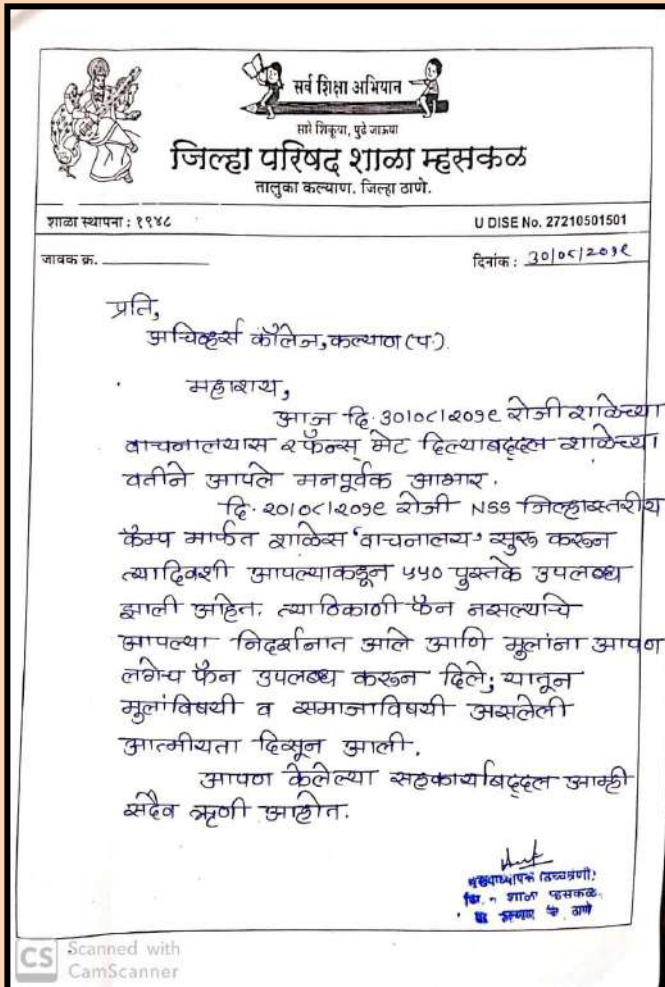 सर्व शिक्षा अभियान
सारे शिकूया, पुढे जाऊया
जिल्हा परिषद शाळा म्हसकळ
तालुका कल्याण. जिल्हा ठाणे.
शाळा स्थापना : १९४८
U DISE No. 27210501501
जावक क्र.
दिनांक : 30/०८/२०१९
प्रति,
अचिव्हर्स कॉलेज, कल्याण (प.)
महाशय,
आज दि. 30/०८/२०१९ रोजी शाळेच्या
वाचनालयास २ फॅन्स् भेट दिल्याबद्दल शाळेच्या
वतीने आपले मनपूर्वक आभार.
दि. २०/०८/२०१९ रोजी NSS जिल्हास्तरीय
कॅम्प मार्फत शाळेस 'वाचनालय' सुरू करून
त्यादिवशी आपल्याकडून ५५० पुस्तके उपलब्ध
झाली आहेत. त्याठिकाणी फॅन नसल्याचे
आपल्या निदर्शनात आले आणि मुलांना आपण
लगेच फॅन उपलब्ध करून दिले; यातून
मुलांविषयी व समाजाविषयी असलेली
आत्मीयता दिसून आली.
आपण केलेल्या सहकार्याबद्दल आम्ही
सदैव ऋणी आहोत.
शाळा म्हसकळ
ठाणे
CS Scanned with
CamScanner